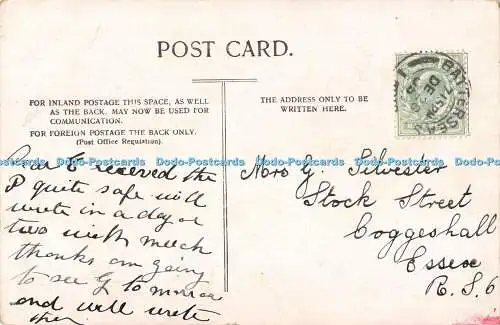 POST CARD.
FOR INLAND POSTAGE THIS SPACE, AS WELL
AS THE BACK, MAY NOW BE USED FOR
COMMUNICATION.
FOR FOREIGN POSTAGE THE BACK ONLY.
(Post Office Regulation).
THE ADDRESS ONLY TO BE
WRITTEN HERE.
Dear E received the
P quite safe will
write in a day or
two with much
thanks am going
to see G tomorrow
and will write
then
Mrs G. Silvester
Stock Street
Coggeshall
Essex
R.S.O
BATTERSEA
DE
Dodo-Postcards Dodo-Postcards Dodo-Postcards Dodo-Postcards Dodo-Postcards
Dodo-Postcards Dodo-Postcards Dodo-Postcards Dodo-Postcards Dodo-Postcards